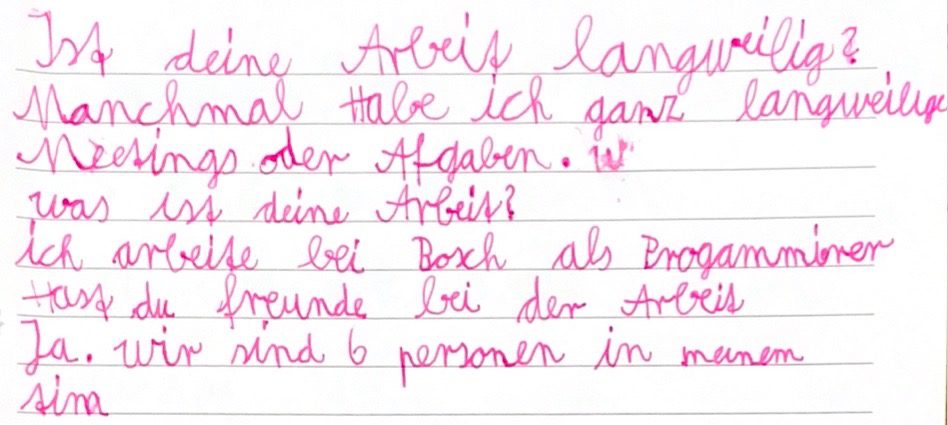 Ist deine Arbeit langweilig?
Manchmal Habe ich ganz langweilige
Meetings oder Afgaben.
was ist deine Arbeit?
ich arbeite bei Bosch als Progamminer
Hast du freunde bei der Arbeit
Ja. wir sind 6 personen in meinem